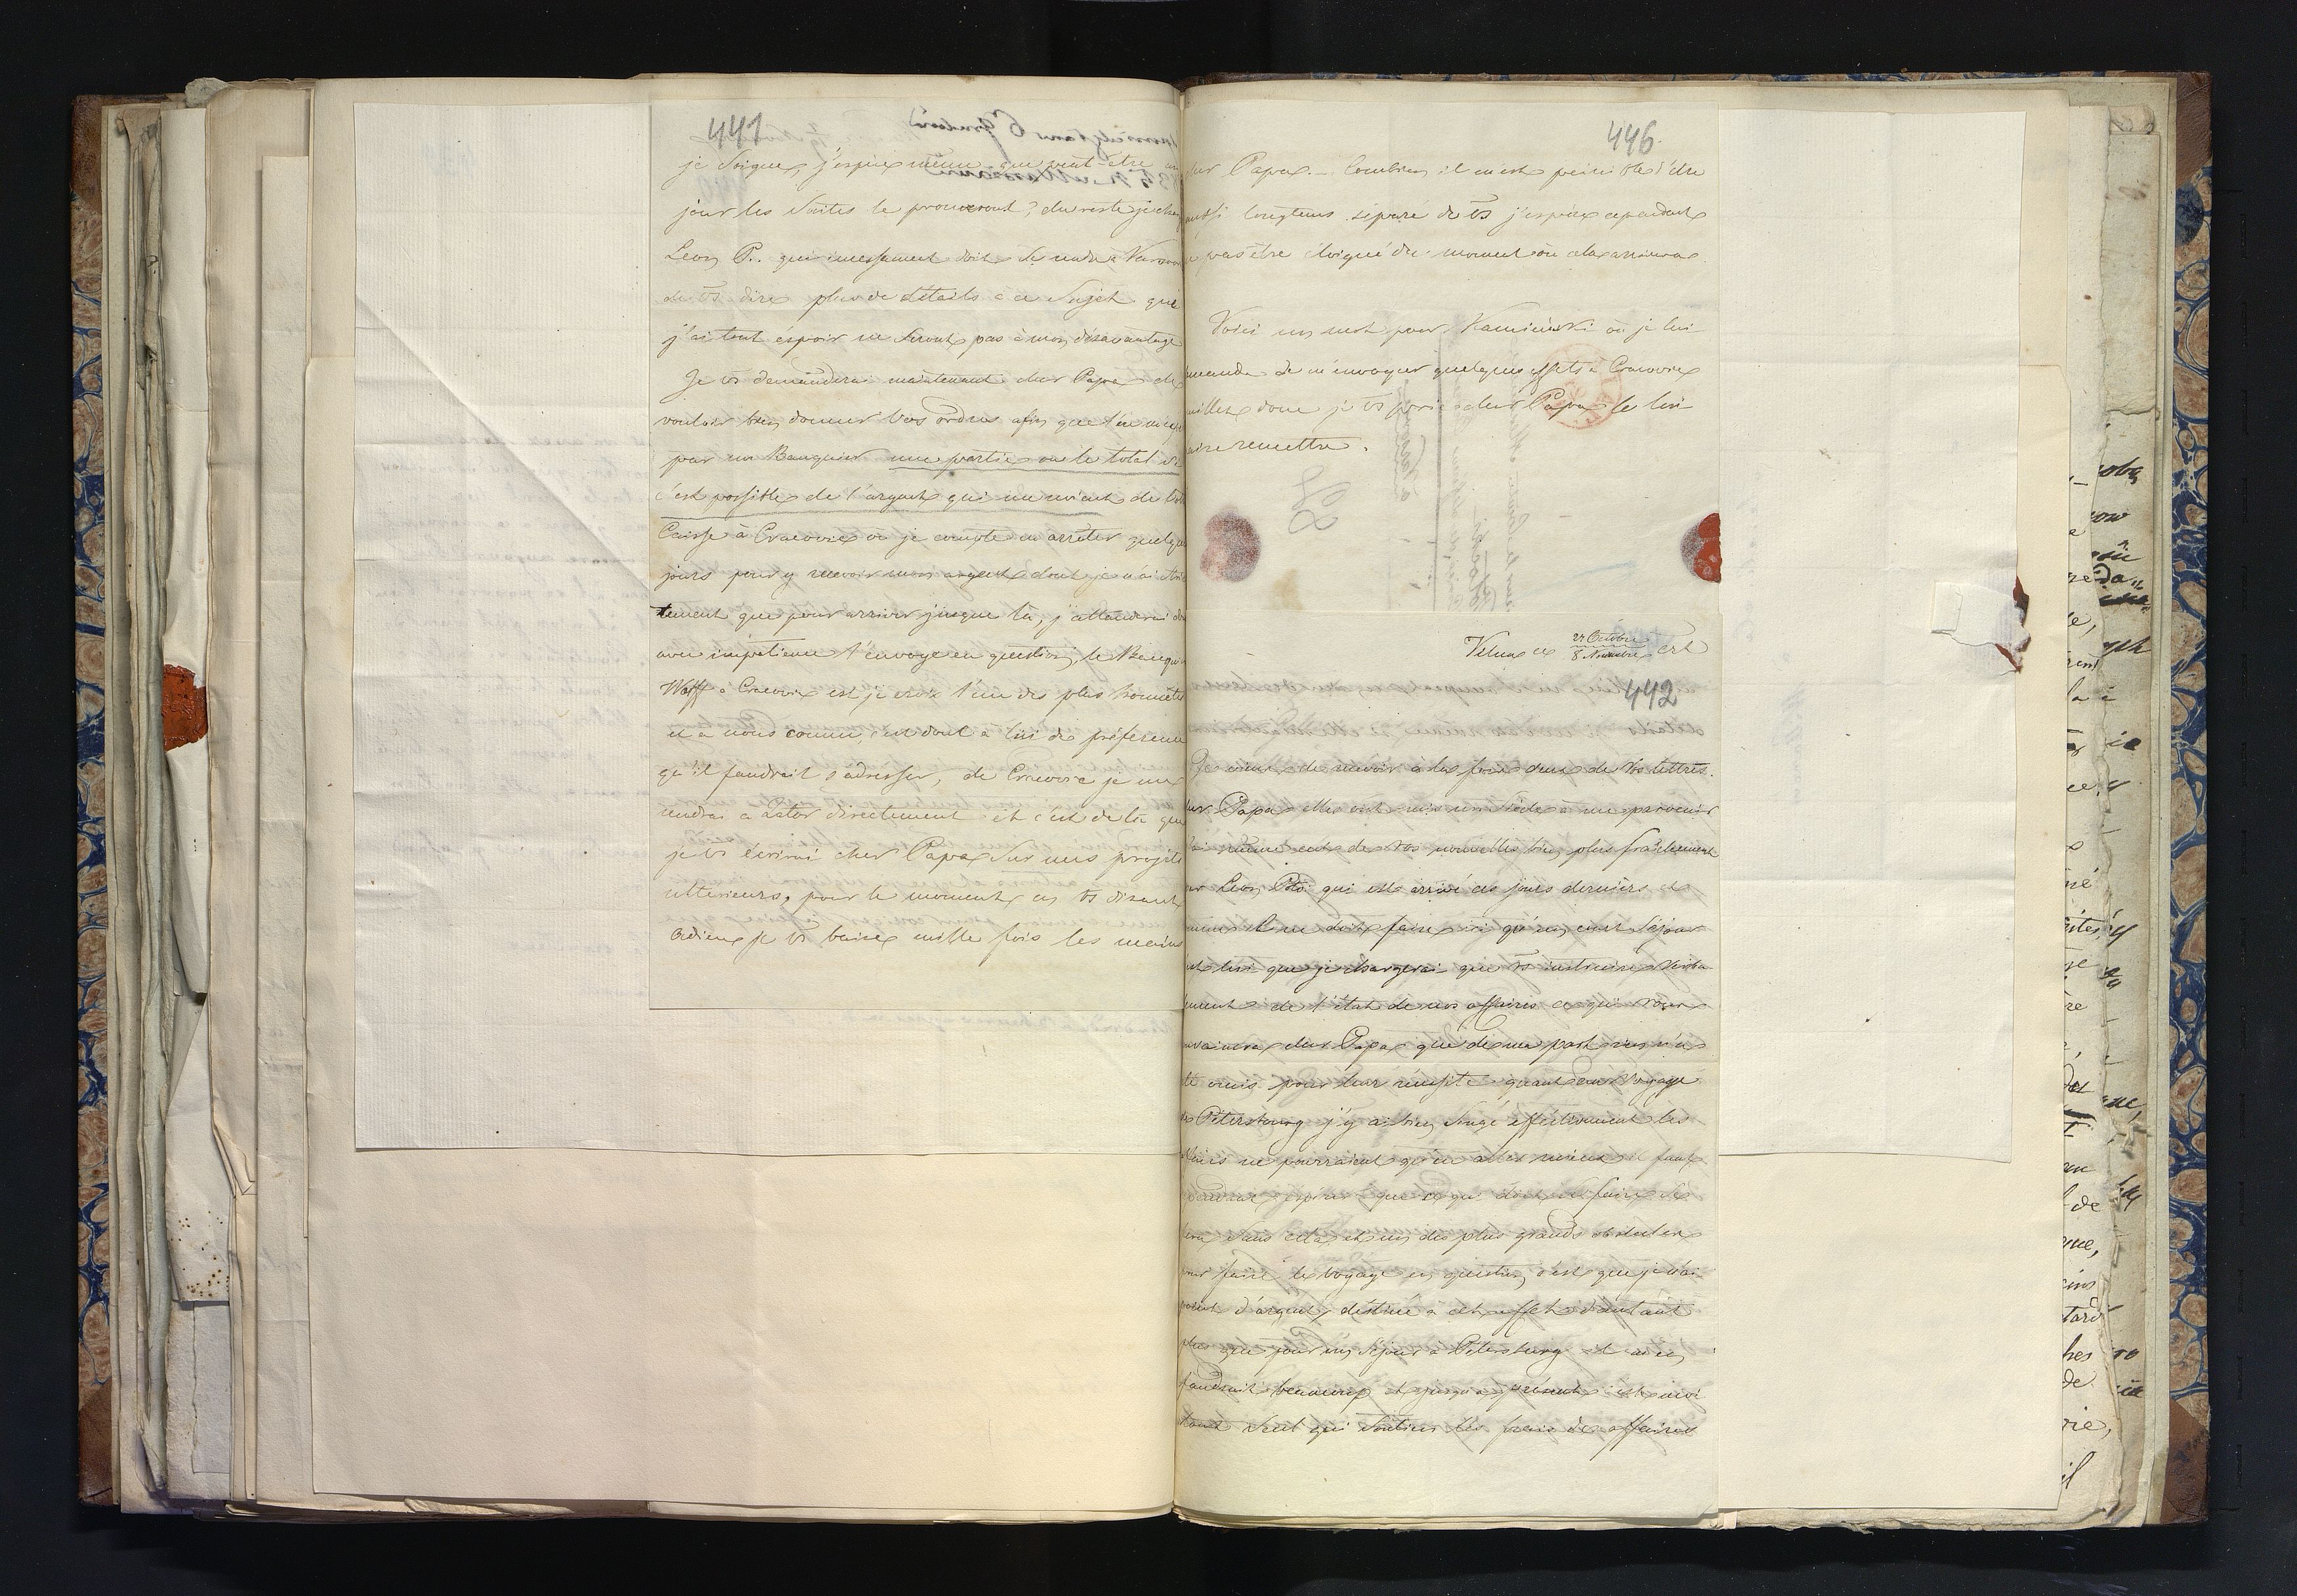 441
je soigne, j'espère même que peut-être un
jour les suites le prouveront, du reste je
Leon P. qui incessament doit se rendre à Varsovie
de vs dire plus de détails à ce sujet que
j'ai tout espoir ne seront pas à mon désavantage
Je vs demanderai maintenant cher Papa de
vouloir bien donner vos ordres afin que l'on
par un Banquier une partie ou le total si
c'est possible de l'argent qui me revient de
Caisse à Cracovie où je compte m'arrêter quelque
jours pour y recevoir mon argent dont je n'ai
tement que pour arriver jusque là, j'attendrai
avec impatience l'envoye en question, le Banquier
Wolff à Cracovie est je crois l'un des plus honnêtes
et à nous connu, c'est dont à lui de préference
qu'il faudrait s'adresser, de Cracovie je me
rendrai à Zator directement et c'est de là que
je vs écrirai cher Papa sur mes projets
ulterieurs, pour le moment en vs disant
adieu je vs baise mille fois les mains
446.
Papa. Combien il m'est penible d'être
aussi longtems séparé de vs j'espère cependant
pas être éloigné du moment où cela arrivera
Voici un mot pour Kamieński où je lui
mande de m'envoyer quelques effets à Cracovie
veuillez donc je vs prie cher Papa le lui
faire remettre.
Vilna ce 27 Octobre
8 Novembre
442
Je viens de recevoir à la fois deux de vos lettres
Papa elles ont mis un siècle à me parvenir
j'ai même eut de vos nouvelles bien plus fraichement
par Leon qui est arrivé ces jours derniers
il ne doit faire ici qu'un court séjour
c'est lui que je chargerai qui vs instruise verba
lement de l'état de nos affaires ce qui vous
convaincra cher Papa que de ma part rien n'a
été omis pour leur réussite quant au voyage
de Petersbourg j'y ai bien songé effectivement les
affaires ne pourraient qu'en aller mieux il faut
espérer que ce qui doit se faire se
fera sans cela et un des plus grands obstacles
pour faire le voyage en question c'est que je n'ai
point d'argent destiné à cet effet d'autant
plus que pour un séjour à Petersburg il m'en
faudrait beaucoup et jusqu'à présent c'est moi
tout seul qui soutiens les frais des affaires